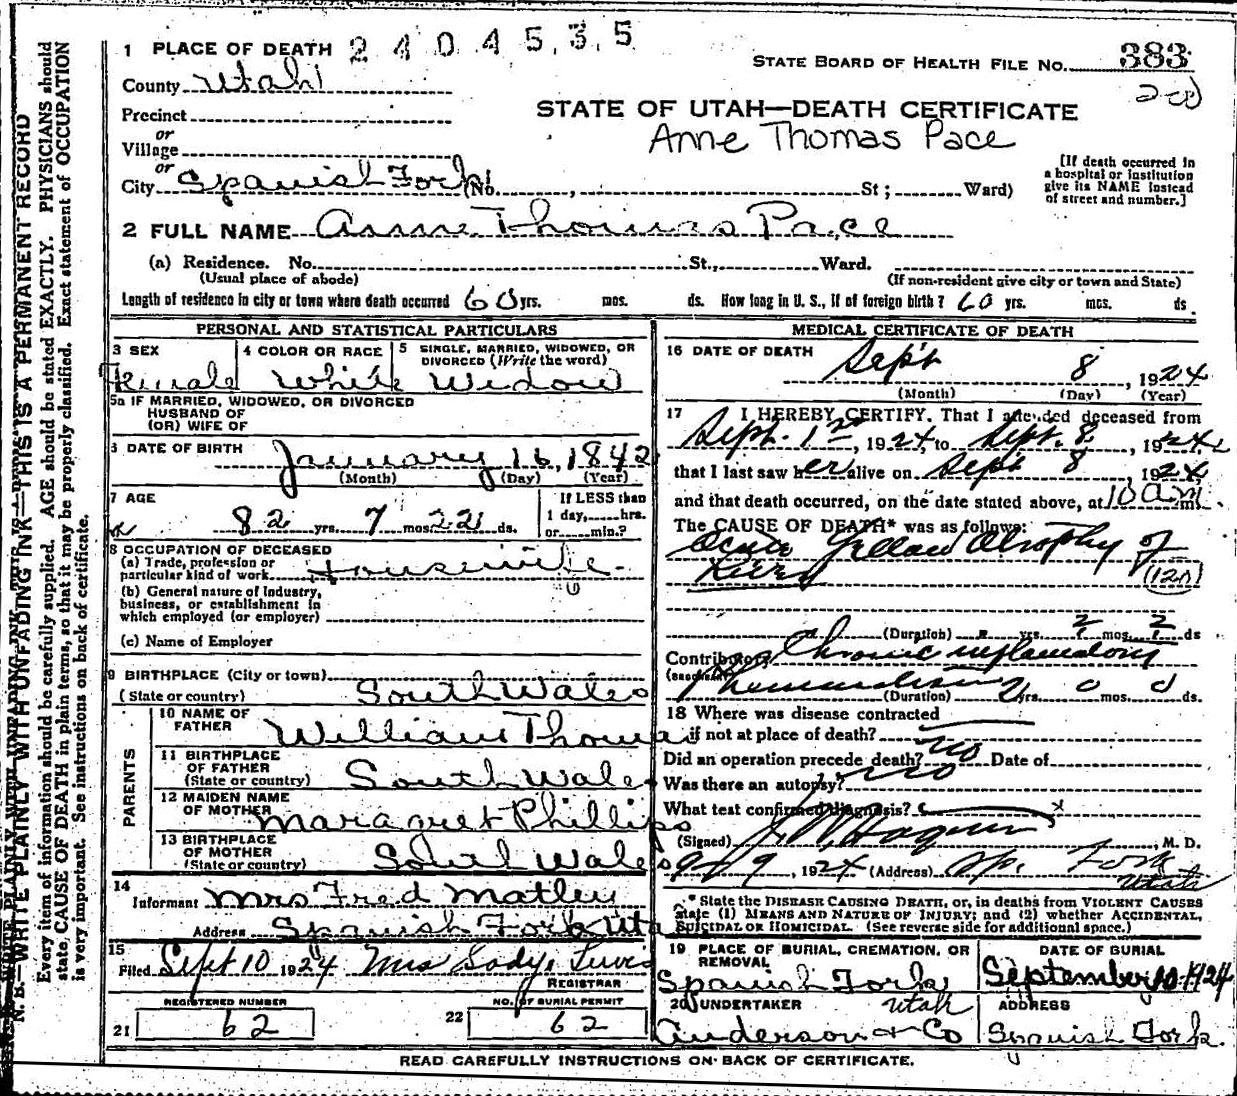 1 PLACE OF DEATH 2404535
STATE BOARD OF HEALTH FILE NO. 383
County Utah
STATE OF UTAH—DEATH CERTIFICATE
Precinct
Anne Thomas Pace
or
Village
or
City Spanish Fork (No. , St; Ward)
[If death occurred in
a hospital or institution
give its NAME instead
of street and number.]
2 FULL NAME Anne Thomas Pace
(a) Residence. No. St., Ward.
(Usual place of abode) (If non-resident give city or town and State)
Length of residence in city or town where death occurred 60 yrs. mos. ds. How long in U. S., if of foreign birth? 60 yrs. mos. ds.
PERSONAL AND STATISTICAL PARTICULARS
3 SEX 4 COLOR OR RACE 5 SINGLE, MARRIED, WIDOWED, OR
DIVORCED (Write the word)
Female White Widow
5a IF MARRIED, WIDOWED, OR DIVORCED
HUSBAND OF
(OR) WIFE OF
6 DATE OF BIRTH January 16, 1842
(Month) (Day) (Year)
7 AGE If LESS than
1 day, hrs.
82 yrs. 7 mos. 22 ds. or min.?
8 OCCUPATION OF DECEASED
(a) Trade, profession or
particular kind of work Housewife
(b) General nature of Industry,
business, or establishment in
which employed (or employer)
(c) Name of Employer
9 BIRTHPLACE (City or town)
(State or country) South Wales
PARENTS
10 NAME OF
FATHER William Thomas
11 BIRTHPLACE
OF FATHER
(State or country) South Wales
12 MAIDEN NAME
OF MOTHER Margaret Phillips
13 BIRTHPLACE
OF MOTHER
(State or country) South Wales
14
Informant Mrs Fred Matley
Address Spanish Fork Uta
15
Filed Sept 10 1924 Mrs
REGISTRAR
REGISTERED NUMBER NO. OF BURIAL PERMIT
21 62 22 62
MEDICAL CERTIFICATE OF DEATH
16 DATE OF DEATH
Sept 8, 1924
(Month) (Day) (Year)
17 I HEREBY CERTIFY. That I attended deceased from
Sept. 1st, 1924, to Sept. 8, 1924,
that I last saw her alive on Sept 8, 1924,
and that death occurred, on the date stated above, at 10 am m.
The CAUSE OF DEATH* was as follows:
Acute Yellow Atrophy of
Liver (120)
(Duration) yrs. ? mos. ? ds
Contributory Chronic inflammatory
(Secondary) Rheumatism
(Duration) 2 yrs. 0 mos. 0 ds.
18 Where was disease contracted
if not at place of death?
Did an operation precede death? no Date of
Was there an autopsy? no
What test confirmed diagnosis?
(Signed) , M. D.
9/9, 1924 (Address) Sp. Fork
Utah
* State the DISEASE CAUSING DEATH, or, in deaths from VIOLENT CAUSES
state (1) MEANS AND NATURE OF INJURY; and (2) whether ACCIDENTAL,
SUICIDAL OR HOMICIDAL. (See reverse side for additional space.)
19 PLACE OF BURIAL, CREMATION, OR
REMOVAL
DATE OF BURIAL
Spanish Fork September 10 1924
Utah
20 UNDERTAKER ADDRESS
Anderson & Co Spanish Fork.
READ CAREFULLY INSTRUCTIONS ON BACK OF CERTIFICATE.
N. B.—WRITE PLAINLY WITH UNFADING INK—THIS IS A PERMANENT RECORD
Every item of information should be carefully supplied. AGE should be stated EXACTLY. PHYSICIANS should
state CAUSE OF DEATH in plain terms, so that it may be properly classified. Exact statement of OCCUPATION
is very important. See instructions on back of certificate.